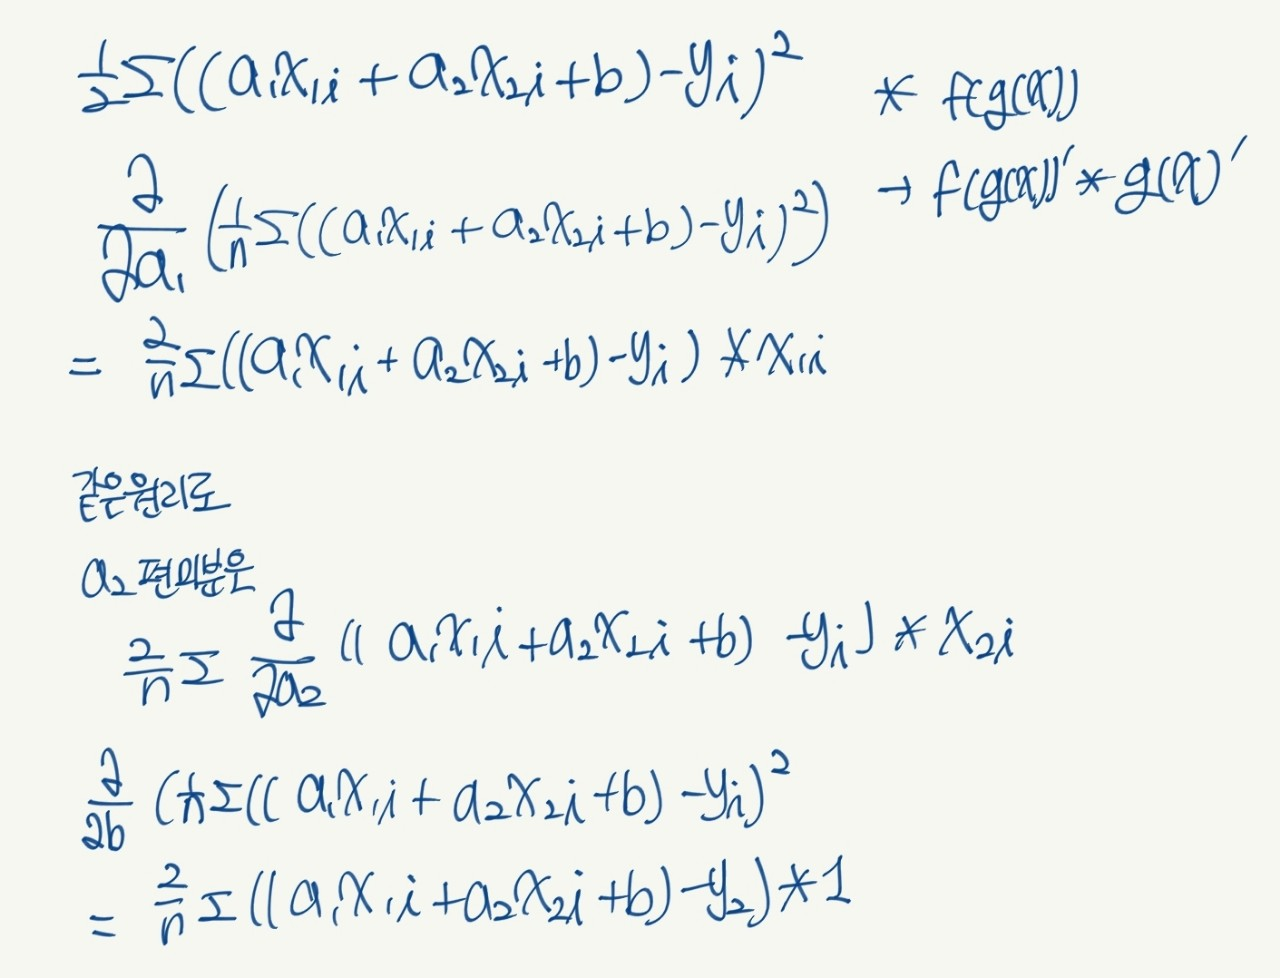 ½Σ((a₁x₁ᵢ + a₂x₂ᵢ + b) - yᵢ)² * f(g(x))
∂/∂a₁ (1/n Σ((a₁x₁ᵢ + a₂x₂ᵢ + b) - yᵢ)²) → f(g(x))' * g(x)'
= 2/n Σ((a₁x₁ᵢ + a₂x₂ᵢ + b) - yᵢ) * x₁ᵢ
같은원리로
a₂ 편미분은
2/n Σ ∂/∂a₂ (( a₁x₁ᵢ + a₂x₂ᵢ + b) - yᵢ) * x₂ᵢ
∂/∂b (1/n Σ(( a₁x₁ᵢ + a₂x₂ᵢ + b) - yᵢ)²
= 2/n Σ((a₁x₁ᵢ + a₂x₂ᵢ + b) - y₂) * 1